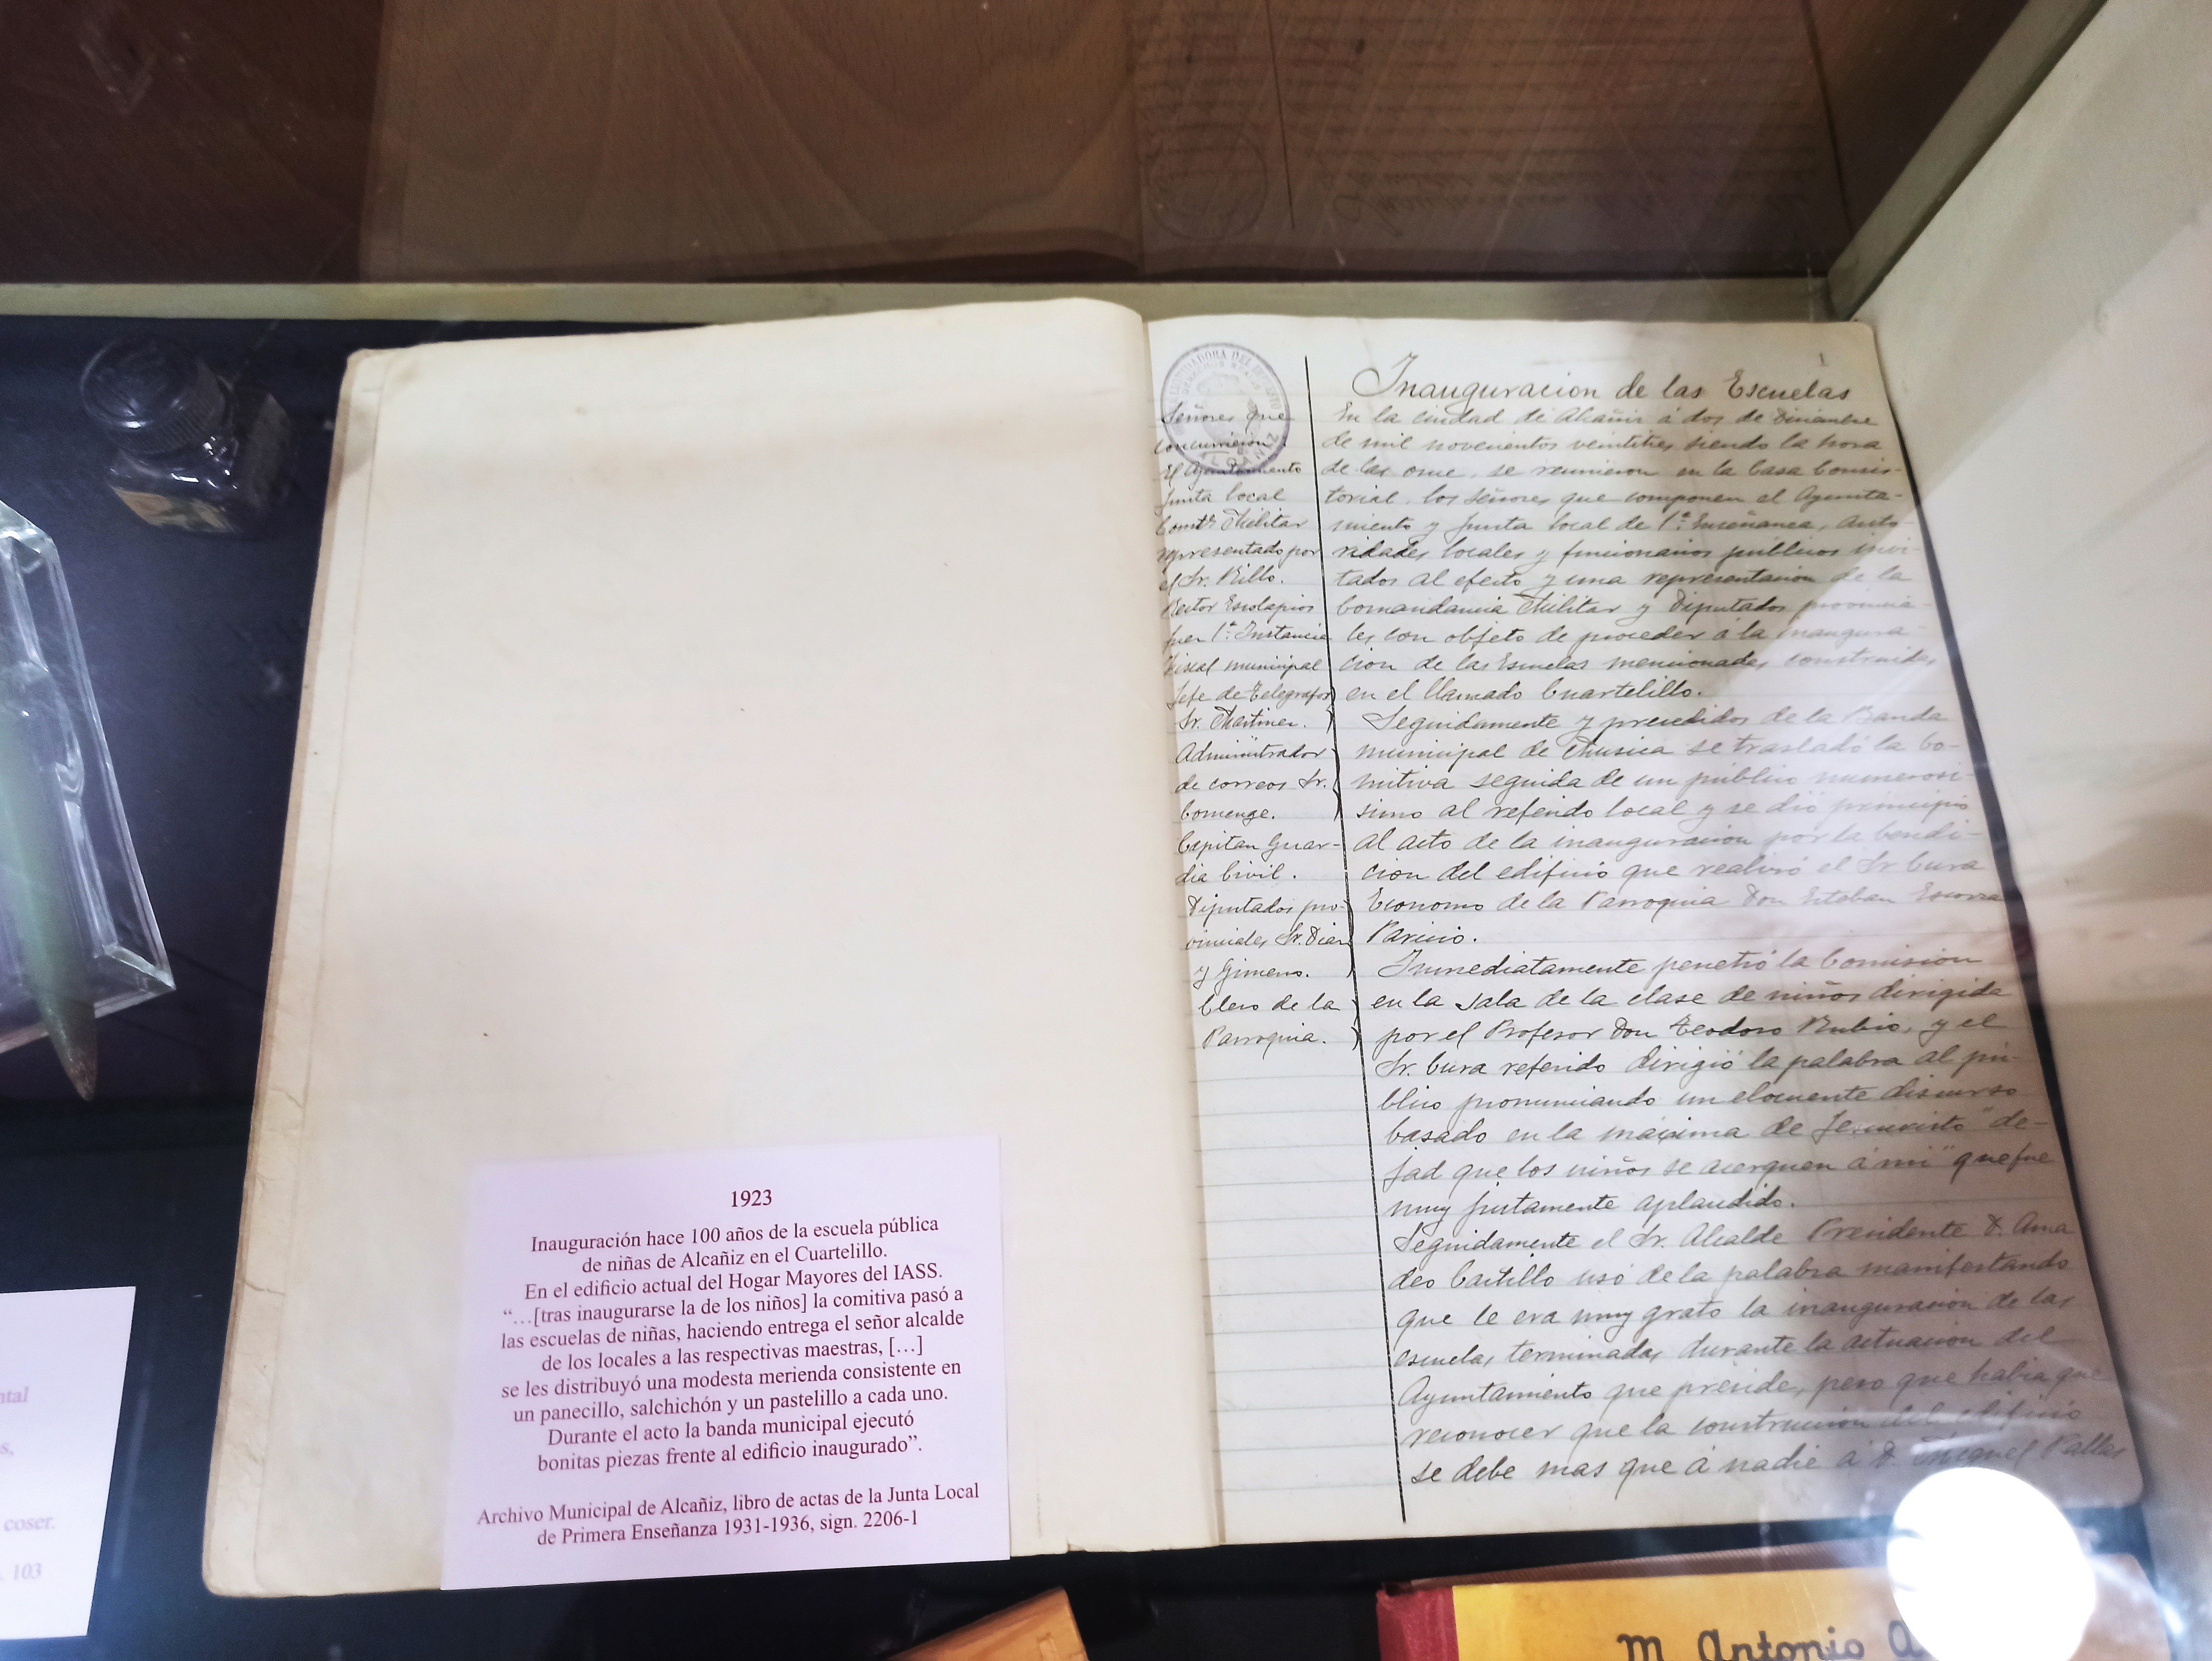 1923
Inauguración hace 100 años de la escuela pública
de niñas de Alcañiz en el Cuartelillo.
En el edificio actual del Hogar Mayores del IASS.
“…[tras inaugurarse la de los niños] la comitiva pasó a
las escuelas de niñas, haciendo entrega el señor alcalde
de los locales a las respectivas maestras, […]
se les distribuyó una modesta merienda consistente en
un panecillo, salchichón y un pastelillo a cada uno.
Durante el acto la banda municipal ejecutó
bonitas piezas frente al edificio inaugurado”.
Archivo Municipal de Alcañiz, libro de actas de la Junta Local
de Primera Enseñanza 1931-1936, sign. 2206-1
coser.
103
1
Señores que
concurrieron.
El Ayuntamiento
Junta local
Comte Militar
representado por
el Sr. Rillo.
Rector Escolapios
Juez 1ª Instancia
Fiscal municipal
Jefe de Telegrafos
Sr. Martinez.
Administrador
de correos Sr.
Comenge.
Capitan Guar-
dia Civil.
Diputados pro-
vinciales Sr. Diaz
y Gimeno.
Clero de la
Parroquia.
Inauguracion de las Escuelas
En la ciudad de Alcañiz á dos de Diciembre
de mil novecientos veintitres, siendo la hora
de las once, se reunieron en la Casa Consis-
torial, los Señores que componen el Ayunta-
miento y Junta local de 1ª Enseñanza, Auto-
ridades locales y funcionarios publicos invi-
tados al efecto y una representacion de la
Comandancia Militar y Diputados provincia-
les con objeto de proceder á la inaugura-
cion de las Escuelas mencionadas, construidas
en el llamado Cuartelillo.
Seguidamente y precedidos de la Banda
municipal de Musica se trasladó la co-
mitiva seguida de un público numerosi-
simo al referido local y se dió principio
al acto de la inauguracion por la bendi-
cion del edificio que realizó el Sr Cura
Economo de la Parroquia Don Esteban
Paricio.
Inmediatamente penetró la Comision
en la sala de la clase de niños dirigida
por el Profesor Don Teodoro Rubio, y el
Sr. Cura referido dirigió la palabra al pú-
blico pronunciando un elocuente discurso
basado en la máxima de Jesucristo "de-
jad que los niños se acerquen á mi" que fue
muy justamente aplaudido.
Seguidamente el Sr. Alcalde Presidente D. Ama
deo Castillo usó de la palabra manifestando
que le era muy grato la inauguracion de las
escuelas terminadas durante la actuacion del
Ayuntamiento que preside, pero que habia que
reconocer que la construccion del edificio
se debe mas que á nadie á D. Miguel
M. Antonio